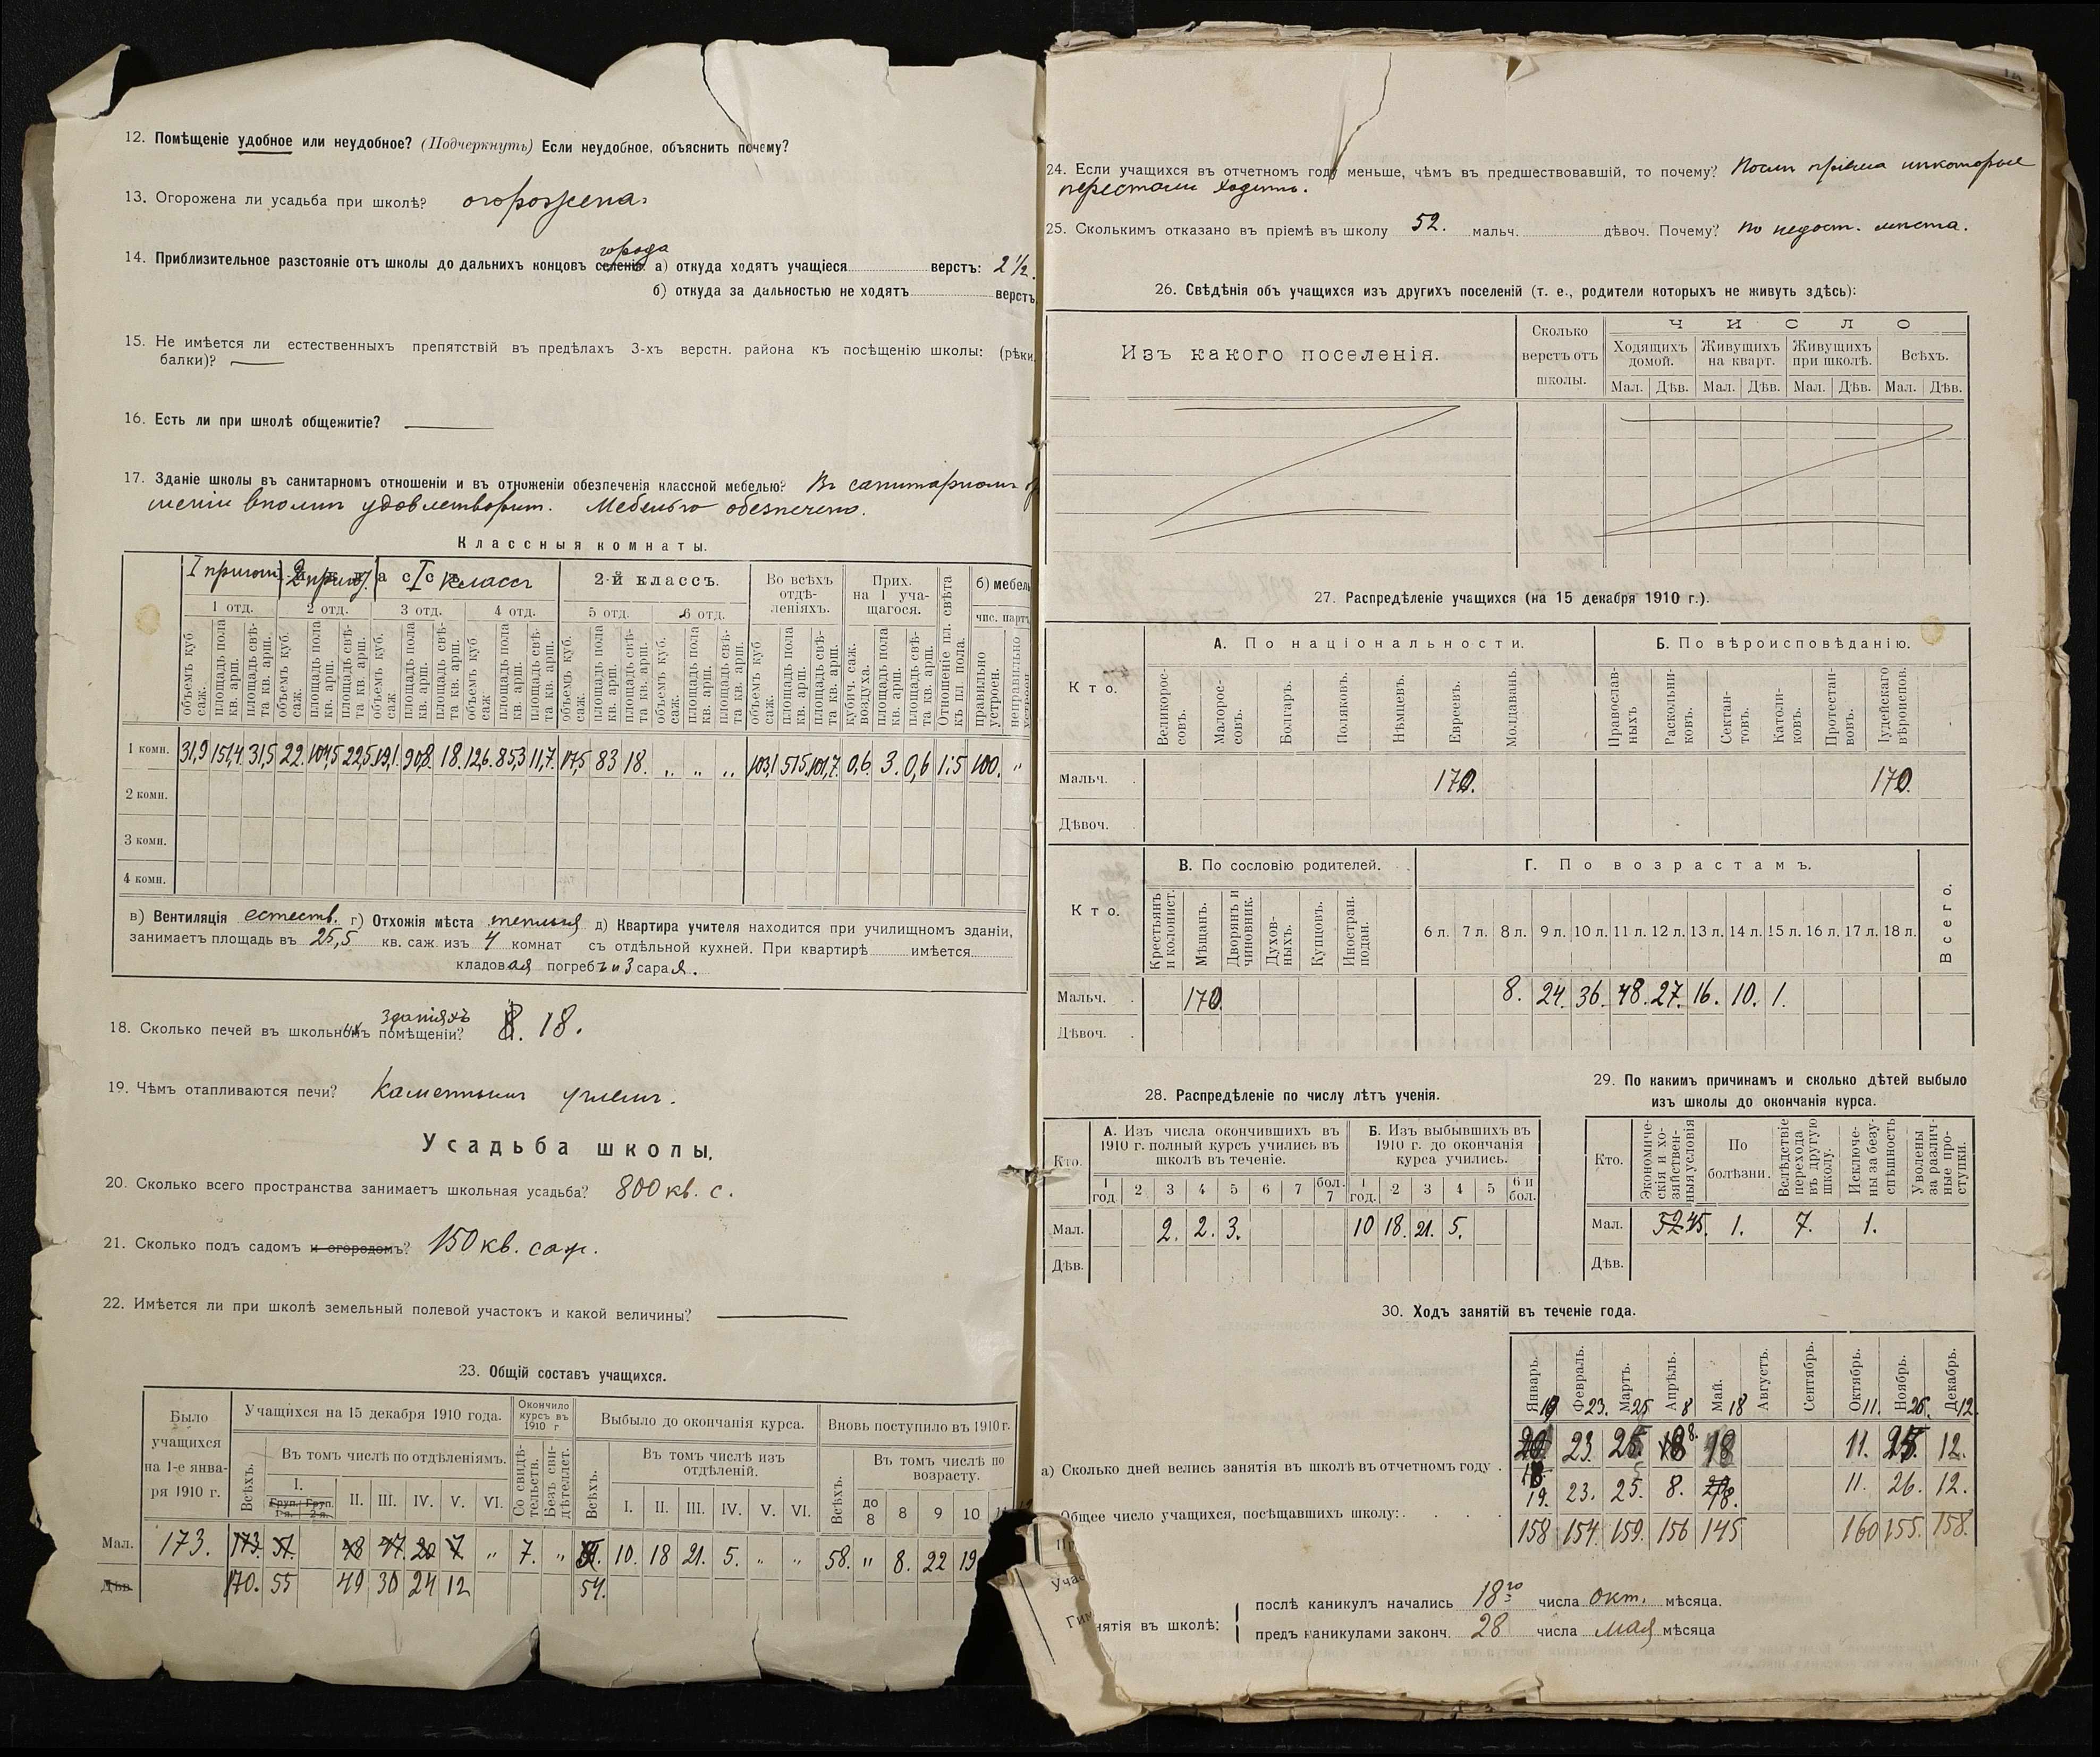 12. Помѣщеніе удобное или неудобное? (Подчеркнуть) Если неудобное, объяснить почему?
13. Огорожена ли усадьба при школѣ? огорожена.
города
14. Приблизительное разстояніе отъ школы до дальнихъ концовъ селенія а) откуда ходятъ учащіеся верстъ: 2 1/2.
б) откуда за дальностью не ходятъ верстъ
15. Не имѣется ли естественныхъ препятствій въ предѣлахъ 3-хъ верстн. района къ посѣщенію школы: (рѣки,
балки)? —
16. Есть ли при школѣ общежитіе? —
17. Зданіе школы въ санитарномъ отношеніи и въ отношеніи обезпеченія классной мебелью? Въ санитарномъ
шеніи вполнѣ удовлетворит. Мебелью обезпечено.
Классныя комнаты.
I пригот. 2 пригот. I классъ 2-й классъ. Во всѣхъ отдѣленіяхъ. Прих. на 1 учащагося. Отношеніе пл. свѣта къ пл. пола. б) мебель
1 отд. 2 отд. 3 отд. 4 отд. 5 отд. 6 отд. чис. партъ
объемъ куб. саж. площадь пола кв. арш. площадь свѣта кв. арш. объемъ куб. саж. площадь пола кв. арш. площадь свѣта кв. арш. объемъ куб. саж. площадь пола кв. арш. площадь свѣта кв. арш. объемъ куб. саж. площадь пола кв. арш. площадь свѣта кв. арш. объемъ куб. саж. площадь пола кв. арш. площадь свѣта кв. арш. объемъ куб. саж. площадь пола кв. арш. площадь свѣта кв. арш. объемъ куб. саж. площадь пола кв. арш. площадь свѣта кв. арш. кубич. саж. воздуха. площадь пола кв. арш. площадь свѣта кв. арш. правильно устроен. неправильно
1 комн. 31,9 151,4 31,5 22. 104,5 22,5 19,1 90,8 18. 12,6 85,3 11,7 17,5 83 18. „ „ „ 103,1 515 101,7 0,6 3. 0,6 1:5 100. „
2 комн.
3 комн.
4 комн.
в) Вентиляція естеств. г) Отхожія мѣста теплыя д) Квартира учителя находится при училищномъ зданіи,
занимаетъ площадь въ 25,5 кв. саж. изъ 4 комнат съ отдѣльной кухней. При квартирѣ имѣется
кладовая погребъ и 3 сарая.
зданіяхъ
18. Сколько печей въ школьныхъ помѣщеніи? 18.
19. Чѣмъ отапливаются печи? Каменнымъ углемъ.
Усадьба школы.
20. Сколько всего пространства занимаетъ школьная усадьба? 800 кв. с.
21. Сколько подъ садомъ и огородомъ? 150 кв. саж.
22. Имѣется ли при школѣ земельный полевой участокъ и какой величины? —
23. Общій составъ учащихся.
Было учащихся на 1-е января 1910 г. Учащихся на 15 декабря 1910 года. Окончило курсъ въ 1910 г Выбыло до окончанія курса. Вновь поступило въ 1910 г.
Всѣхъ. Въ томъ числѣ по отдѣленіямъ. Со свидѣтельств. Безъ свидѣтельст. Всѣхъ. Въ томъ числѣ изъ отдѣленій. Всѣхъ. Въ томъ числѣ по возрасту.
I. Груп. 1-я. Груп. 2-я. II. III. IV. V. VI. I. II. III. IV. V. VI. до 8 8 9 10
Мал. 173. 173. 51. 48 47 20 7 „ 7. „ 10. 18 21. 5. „ „ 58. „ 8. 22 19
Дѣв. 170. 55 49 30 24 12 54.
24. Если учащихся въ отчетномъ году меньше, чѣмъ въ предшествовавшій, то почему? Послѣ пріема нѣкоторые
перестали ходить.
25. Сколькимъ отказано въ пріемѣ въ школу 52. мальч. дѣвоч. Почему? по недост. мѣста.
26. Свѣдѣнія объ учащихся изъ другихъ поселеній (т. е., родители которыхъ не живутъ здѣсь):
Изъ какого поселенія. Сколько верстъ отъ школы. ЧИСЛО
Ходящихъ домой. Живущихъ на кварт. Живущихъ при школѣ. Всѣхъ.
Мал. Дѣв. Мал. Дѣв. Мал. Дѣв. Мал. Дѣв.
27. Распредѣленіе учащихся (на 15 декабря 1910 г.).
Кто. А. По національности. Б. По вѣроисповѣданію.
Великороссовъ. Малороссовъ. Болгаръ. Поляковъ. Нѣмцевъ. Евреевъ. Молдаванъ. Православныхъ Раскольниковъ. Сектантовъ. Католиковъ. Протестантовъ. Іудейскаго вѣроисповѣ.
Мальч. 170. 170.
Дѣвоч.
Кто. В. По сословію родителей. Г. По возрастамъ. Всего.
Крестьянъ и колонист. Мѣщанъ. Дворянъ и чиновник. Духовныхъ. Купцовъ. Иностран. подан. 6 л. 7 л. 8 л. 9 л. 10 л. 11 л. 12 л. 13 л. 14 л. 15 л. 16 л. 17 л. 18 л.
Мальч. 170. 8. 24. 36. 48. 27. 16. 10. 1.
Дѣвоч.
28. Распредѣленіе по числу лѣтъ ученія.
Кто. А. Изъ числа окончившихъ въ 1910 г. полный курсъ учились въ школѣ въ теченіе. Б. Изъ выбывшихъ въ 1910 г. до окончанія курса учились.
1 год. 2 3 4 5 6 7 бол. 7 1 год. 2 3 4 5 6 и бол.
Мал. 2. 2. 3. 10 18. 21. 5.
Дѣв.
29. По какимъ причинамъ и сколько дѣтей выбыло
изъ школы до окончанія курса.
Кто. Экономическія и хозяйственныя условія По болѣзни. Вслѣдствіе перехода въ другую школу. Исключены за безуспѣшность Уволены за различные проступки.
Мал. 52 45. 1. 7. 1.
Дѣв.
30. Ходъ занятій въ теченіе года.
Январь. Февраль. Мартъ. Апрѣль. Май. Августъ. Сентябрь. Октябрь. Ноябрь. Декабрь.
19 23. 25 8 18 11. 26. 12.
а) Сколько дней велись занятія въ школѣ въ отчетномъ году . 20 23. 25 18 8. 18 11. 25. 12.
19. 23. 25. 8. 18. 11. 26. 12.
Общее число учащихся, посѣщавшихъ школу: 158 154 159. 156 145 160 155. 158.
нятія въ школѣ:
послѣ каникулъ начались 18го числа окт. мѣсяца.
предъ каникулами законч. 28 числа мая мѣсяца